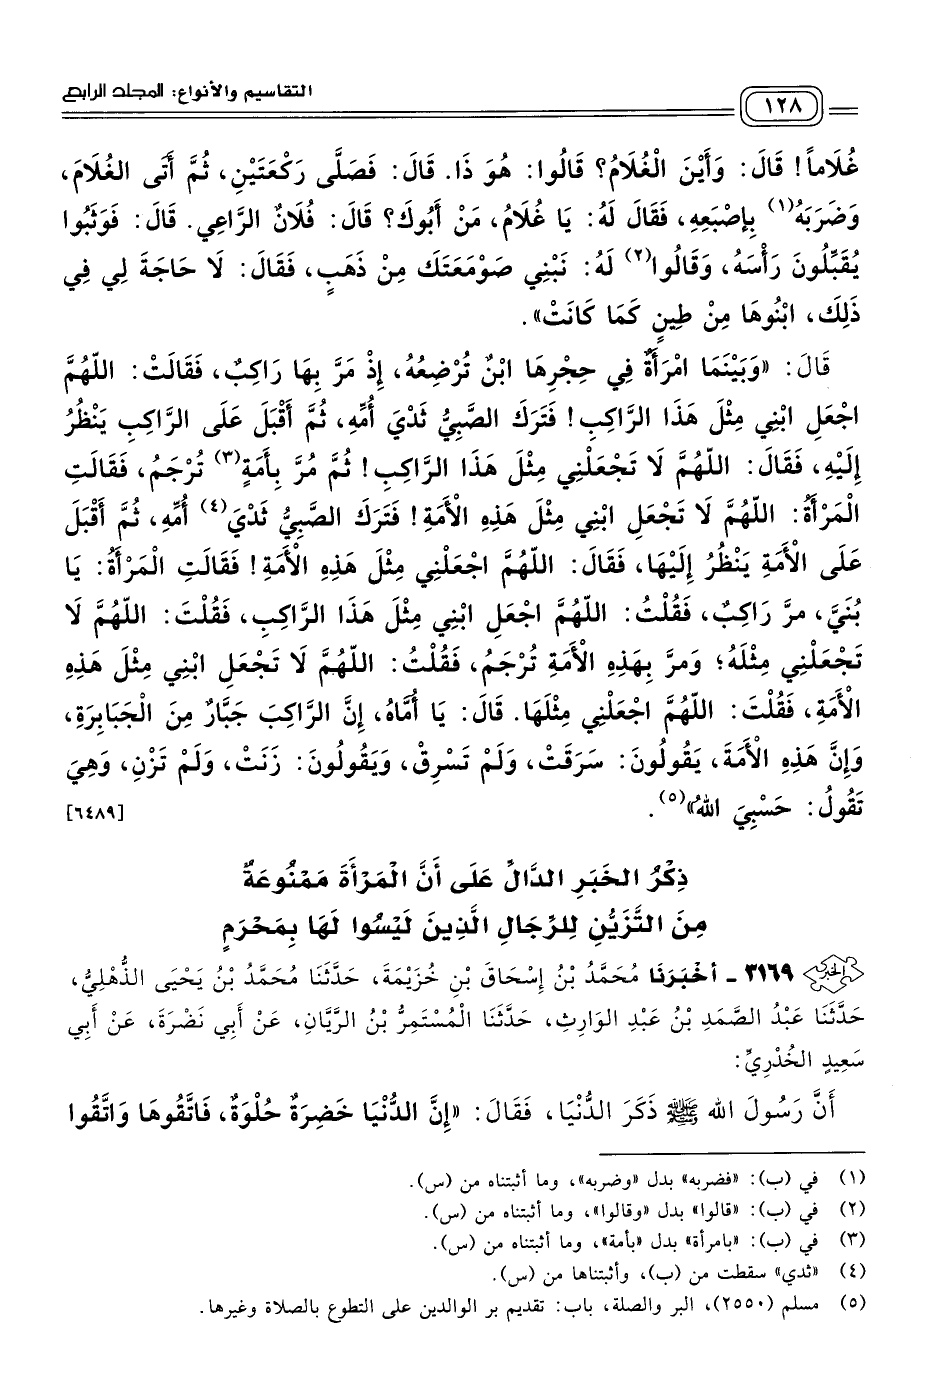 ١٢٨ التقاسيم والأنواع: المجلد الرابع
غُلَاماً! قَالَ: وَأَيْنَ الْغُلَامُ؟ قَالُوا: هُوَ ذَا. قَالَ: فَصَلَّى رَكْعَتَيْنِ، ثُمَّ أَتَى الْغُلَامَ،
وَضَرَبَهُ(١) بِإِصْبَعِهِ، فَقَالَ لَهُ: يَا غُلَامُ، مَنْ أَبُوكَ؟ قَالَ: فُلَانٌ الرَّاعِي. قَالَ: فَوَثَبُوا
يُقَبِّلُونَ رَأْسَهُ، وَقَالُوا(٢) لَهُ: نَبْنِي صَوْمَعَتَكَ مِنْ ذَهَبٍ، فَقَالَ: لَا حَاجَةَ لِي فِي
ذَلِكَ، ابْنُوهَا مِنْ طِينٍ كَمَا كَانَتْ».
قَالَ: «وَبَيْنَمَا امْرَأَةٌ فِي حِجْرِهَا ابْنٌ تُرْضِعُهُ، إِذْ مَرَّ بِهَا رَاكِبٌ، فَقَالَتْ: اللّهُمَّ
اجْعَلِ ابْنِي مِثْلَ هَذَا الرَّاكِبِ! فَتَرَكَ الصَّبِيُّ ثَدْيَ أُمِّهِ، ثُمَّ أَقْبَلَ عَلَى الرَّاكِبِ يَنْظُرُ
إِلَيْهِ، فَقَالَ: اللّهُمَّ لَا تَجْعَلْنِي مِثْلَ هَذَا الرَّاكِبِ! ثُمَّ مُرَّ بِأَمَةٍ(٣) تُرْجَمُ، فَقَالَتِ
الْمَرْأَةُ: اللّهُمَّ لَا تَجْعَلِ ابْنِي مِثْلَ هَذِهِ الْأَمَةِ! فَتَرَكَ الصَّبِيُّ ثَدْيَ(٤) أُمِّهِ، ثُمَّ أَقْبَلَ
عَلَى الْأَمَةِ يَنْظُرُ إِلَيْهَا، فَقَالَ: اللّهُمَّ اجْعَلْنِي مِثْلَ هَذِهِ الْأَمَةِ! فَقَالَتِ الْمَرْأَةُ: يَا
بُنَيَّ، مرَّ رَاكِبٌ، فَقُلْتُ: اللّهُمَّ اجْعَلِ ابْنِي مِثْلَ هَذَا الرَّاكِبِ، فَقُلْتَ: اللّهُمَّ لَا
تَجْعَلْنِي مِثْلَهُ؛ وَمرَّ بِهَذِهِ الْأَمَةِ تُرْجَمُ، فَقُلْتُ: اللّهُمَّ لَا تَجْعَلِ ابْنِي مِثْلَ هَذِهِ
الْأَمَةِ، فَقُلْتَ: اللّهُمَّ اجْعَلْنِي مِثْلَهَا. قَالَ: يَا أُمَّاهُ، إِنَّ الرَّاكِبَ جَبَّارٌ مِنَ الْجَبَابِرَةِ،
وَإِنَّ هَذِهِ الْأَمَةَ، يَقُولُونَ: سَرَقَتْ، وَلَمْ تَسْرِقْ، وَيَقُولُونَ: زَنَتْ، وَلَمْ تَزْنِ، وَهِيَ
تَقُولُ: حَسْبِيَ اللهُ»(٥). [٦٤٨٩]
ذِكْرُ الْخَبَرِ الدَّالِّ عَلَى أَنَّ الْمَرْأَةَ مَمْنُوعَةٌ
مِنَ التَّزَيُّنِ لِلرِّجَالِ الَّذِينَ لَيْسُوا لَهَا بِمَحْرَمٍ
الخبر ٣١٦٩ - أَخْبَرَنَا مُحَمَّدُ بْنُ إِسْحَاقَ بْنِ خُزَيْمَةَ، حَدَّثَنَا مُحَمَّدُ بْنُ يَحْيَى الذُّهْلِيُّ،
حَدَّثَنَا عَبْدُ الصَّمَدِ بْنُ عَبْدِ الوَارِثِ، حَدَّثَنَا الْمُسْتَمِرُّ بْنُ الرَّيَّانِ، عَنْ أَبِي نَضْرَةَ، عَنْ أَبِي
سَعِيدٍ الخُدْرِيِّ:
أَنَّ رَسُولَ الله ﷺ ذَكَرَ الدُّنْيَا، فَقَالَ: «إِنَّ الدُّنْيَا خَضِرَةٌ حُلْوَةٌ، فَاتَّقُوهَا وَاتَّقُوا
(١) في (ب): «فضربه» بدل «وضربه»، وما أثبتناه من (س).
(٢) في (ب): «قالوا» بدل «وقالوا»، وما أثبتناه من (س).
(٣) في (ب): «بامرأة» بدل «بأمة»، وما أثبتناه من (س).
(٤) «ثدي» سقطت من (ب)، وأثبتناها من (س).
(٥) مسلم (٢٥٥٠)، البر والصلة، باب: تقديم بر الوالدين على التطوع بالصلاة وغيرها.